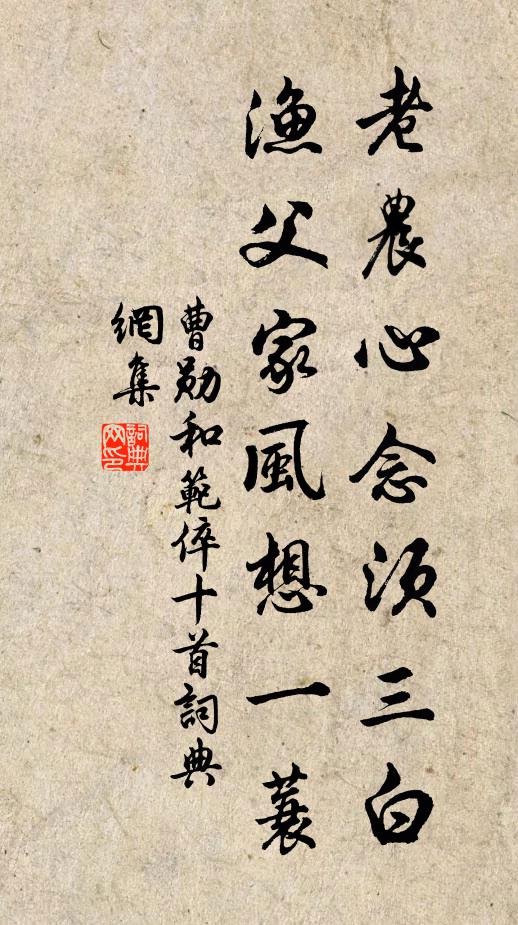 老農心念須三白
漁父家風想一蓑
曹勛和範倅十首詞典
網集
詞典
网印